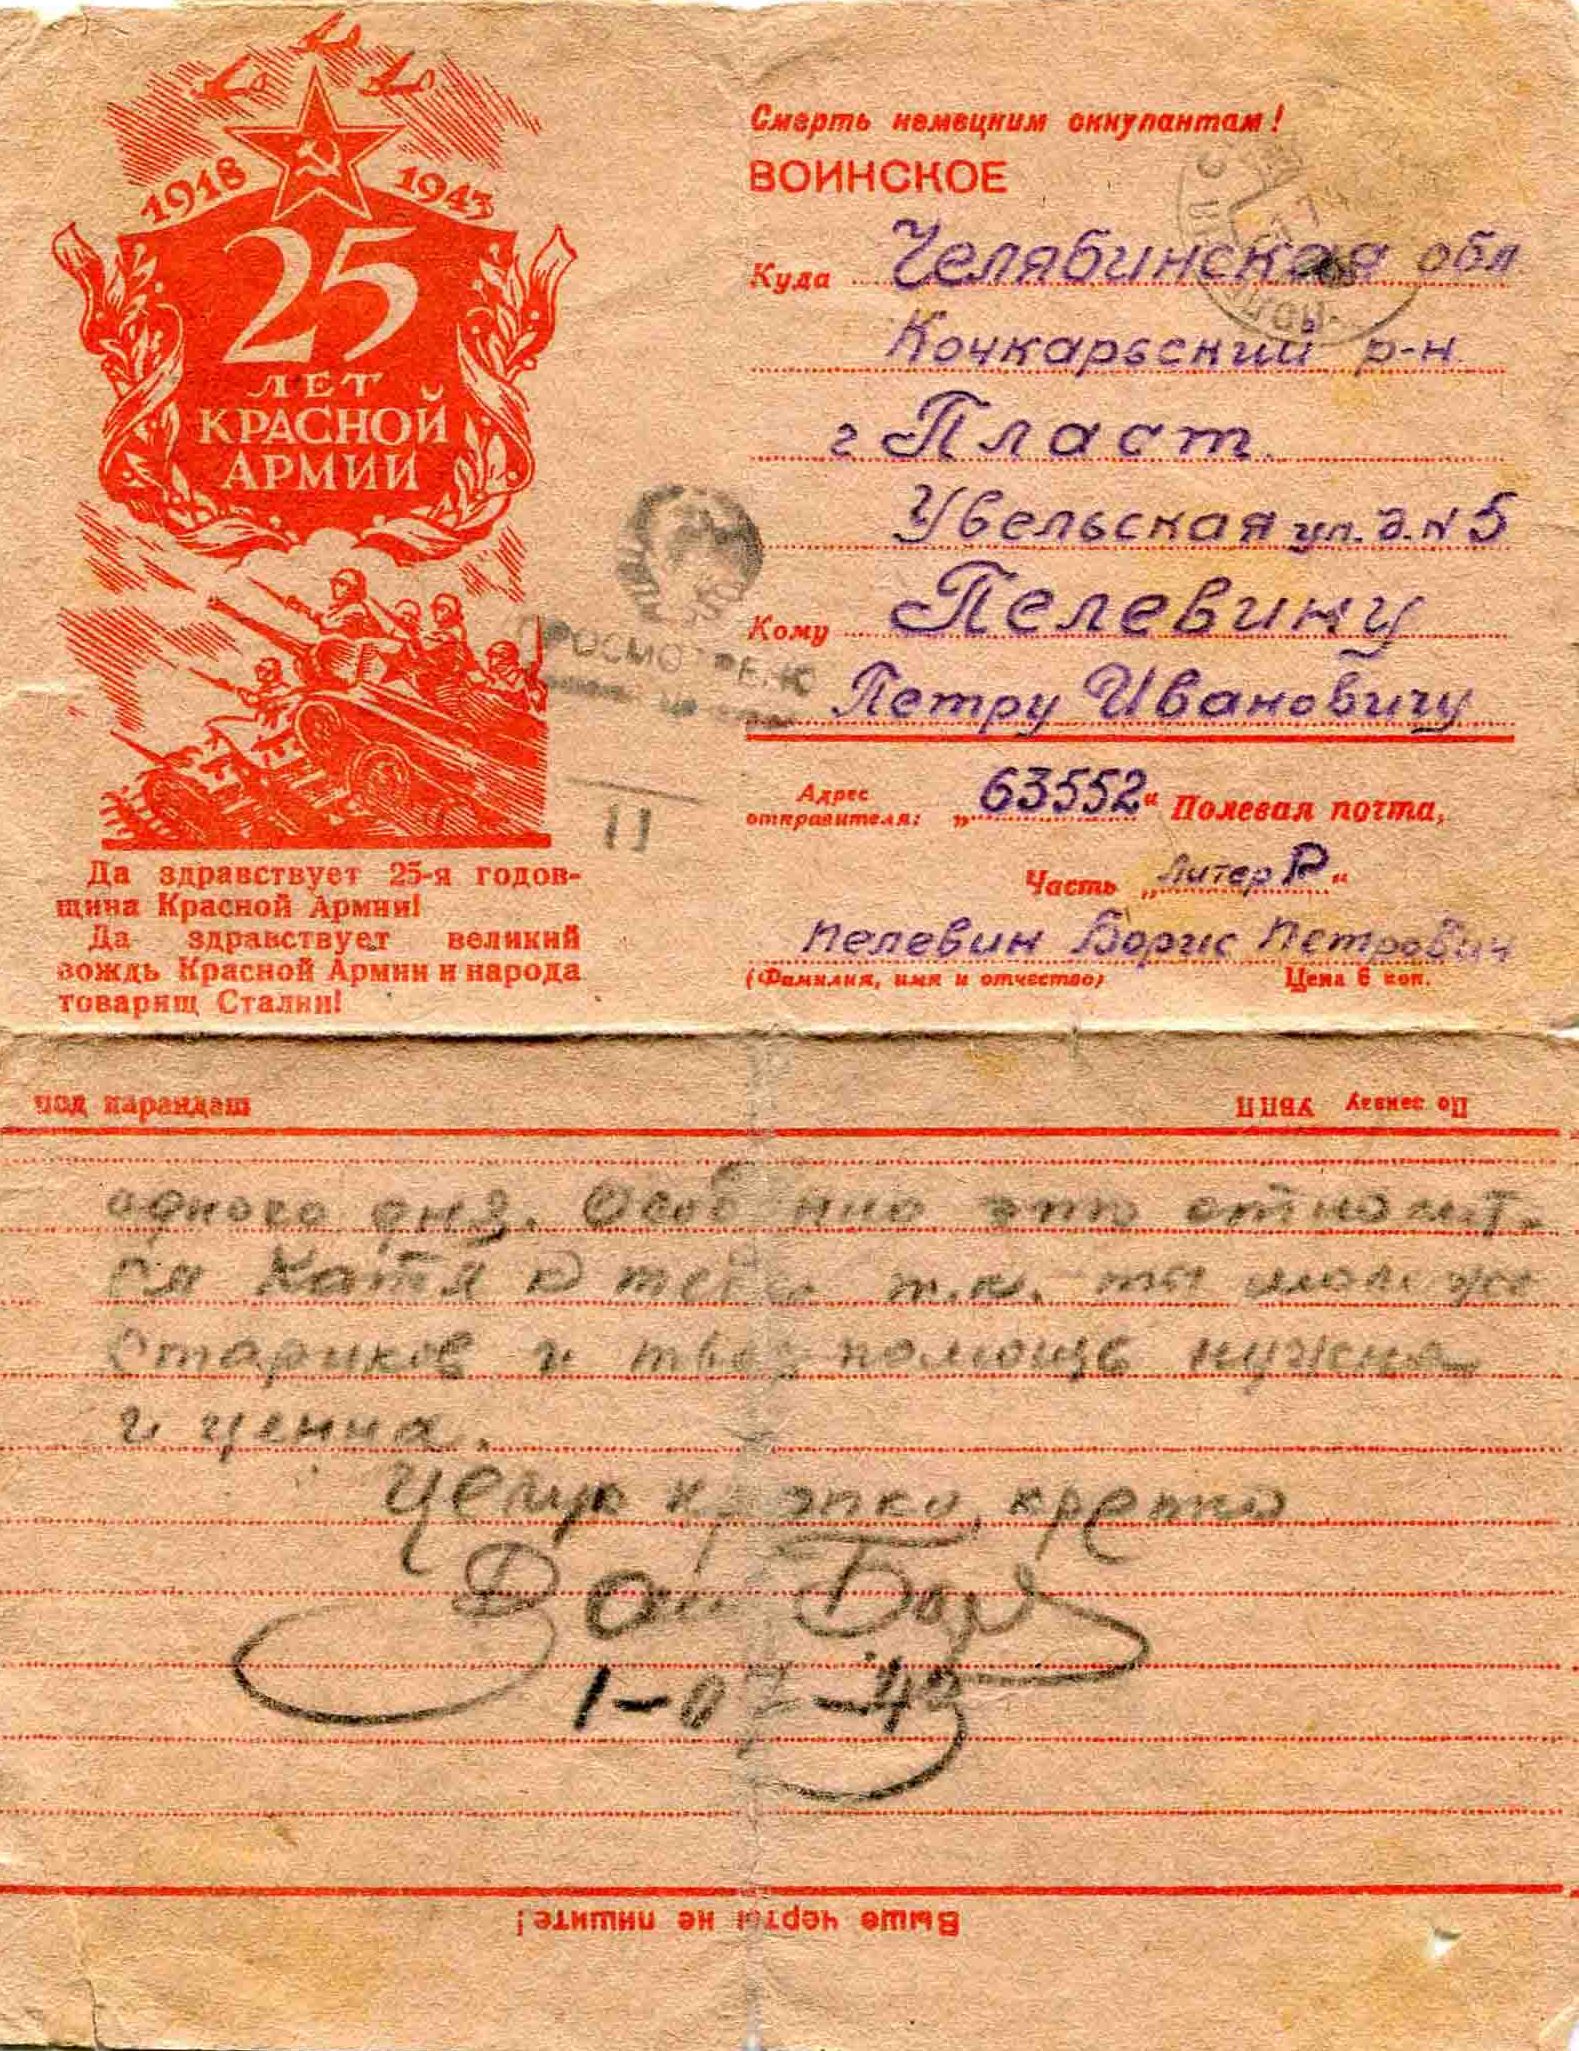 1918 1943
25
ЛЕТ
КРАСНОЙ
АРМИИ
Да здравствует 25-я годов-
щина Красной Армии!
Да здравствует великий
вождь Красной Армии и народа
товарищ Сталин!
ПРОСМОТРЕНО
11
Смерть немецким оккупантам!
ВОИНСКОЕ
Куда Челябинская обл
Кочкарьский р-н
г Пласт
Увельская ул. д. N 5
Кому Пелевину
Петру Ивановичу
Адрес отправителя: „63552“ Полевая почта,
Часть „Литер Р“
Пелевин Борис Петрович
(Фамилия, имя и отчество) Цена 6 коп.
под карандаш
По заказу УВПП
одного дня. Особенно это относит-
ся Катя к тебе т.к. ты моложе
стариков и твоя помощь нужна
и ценна.
Целую крепко, крепко
Ваш Бор
1-07-43
Выше черты не пишите!